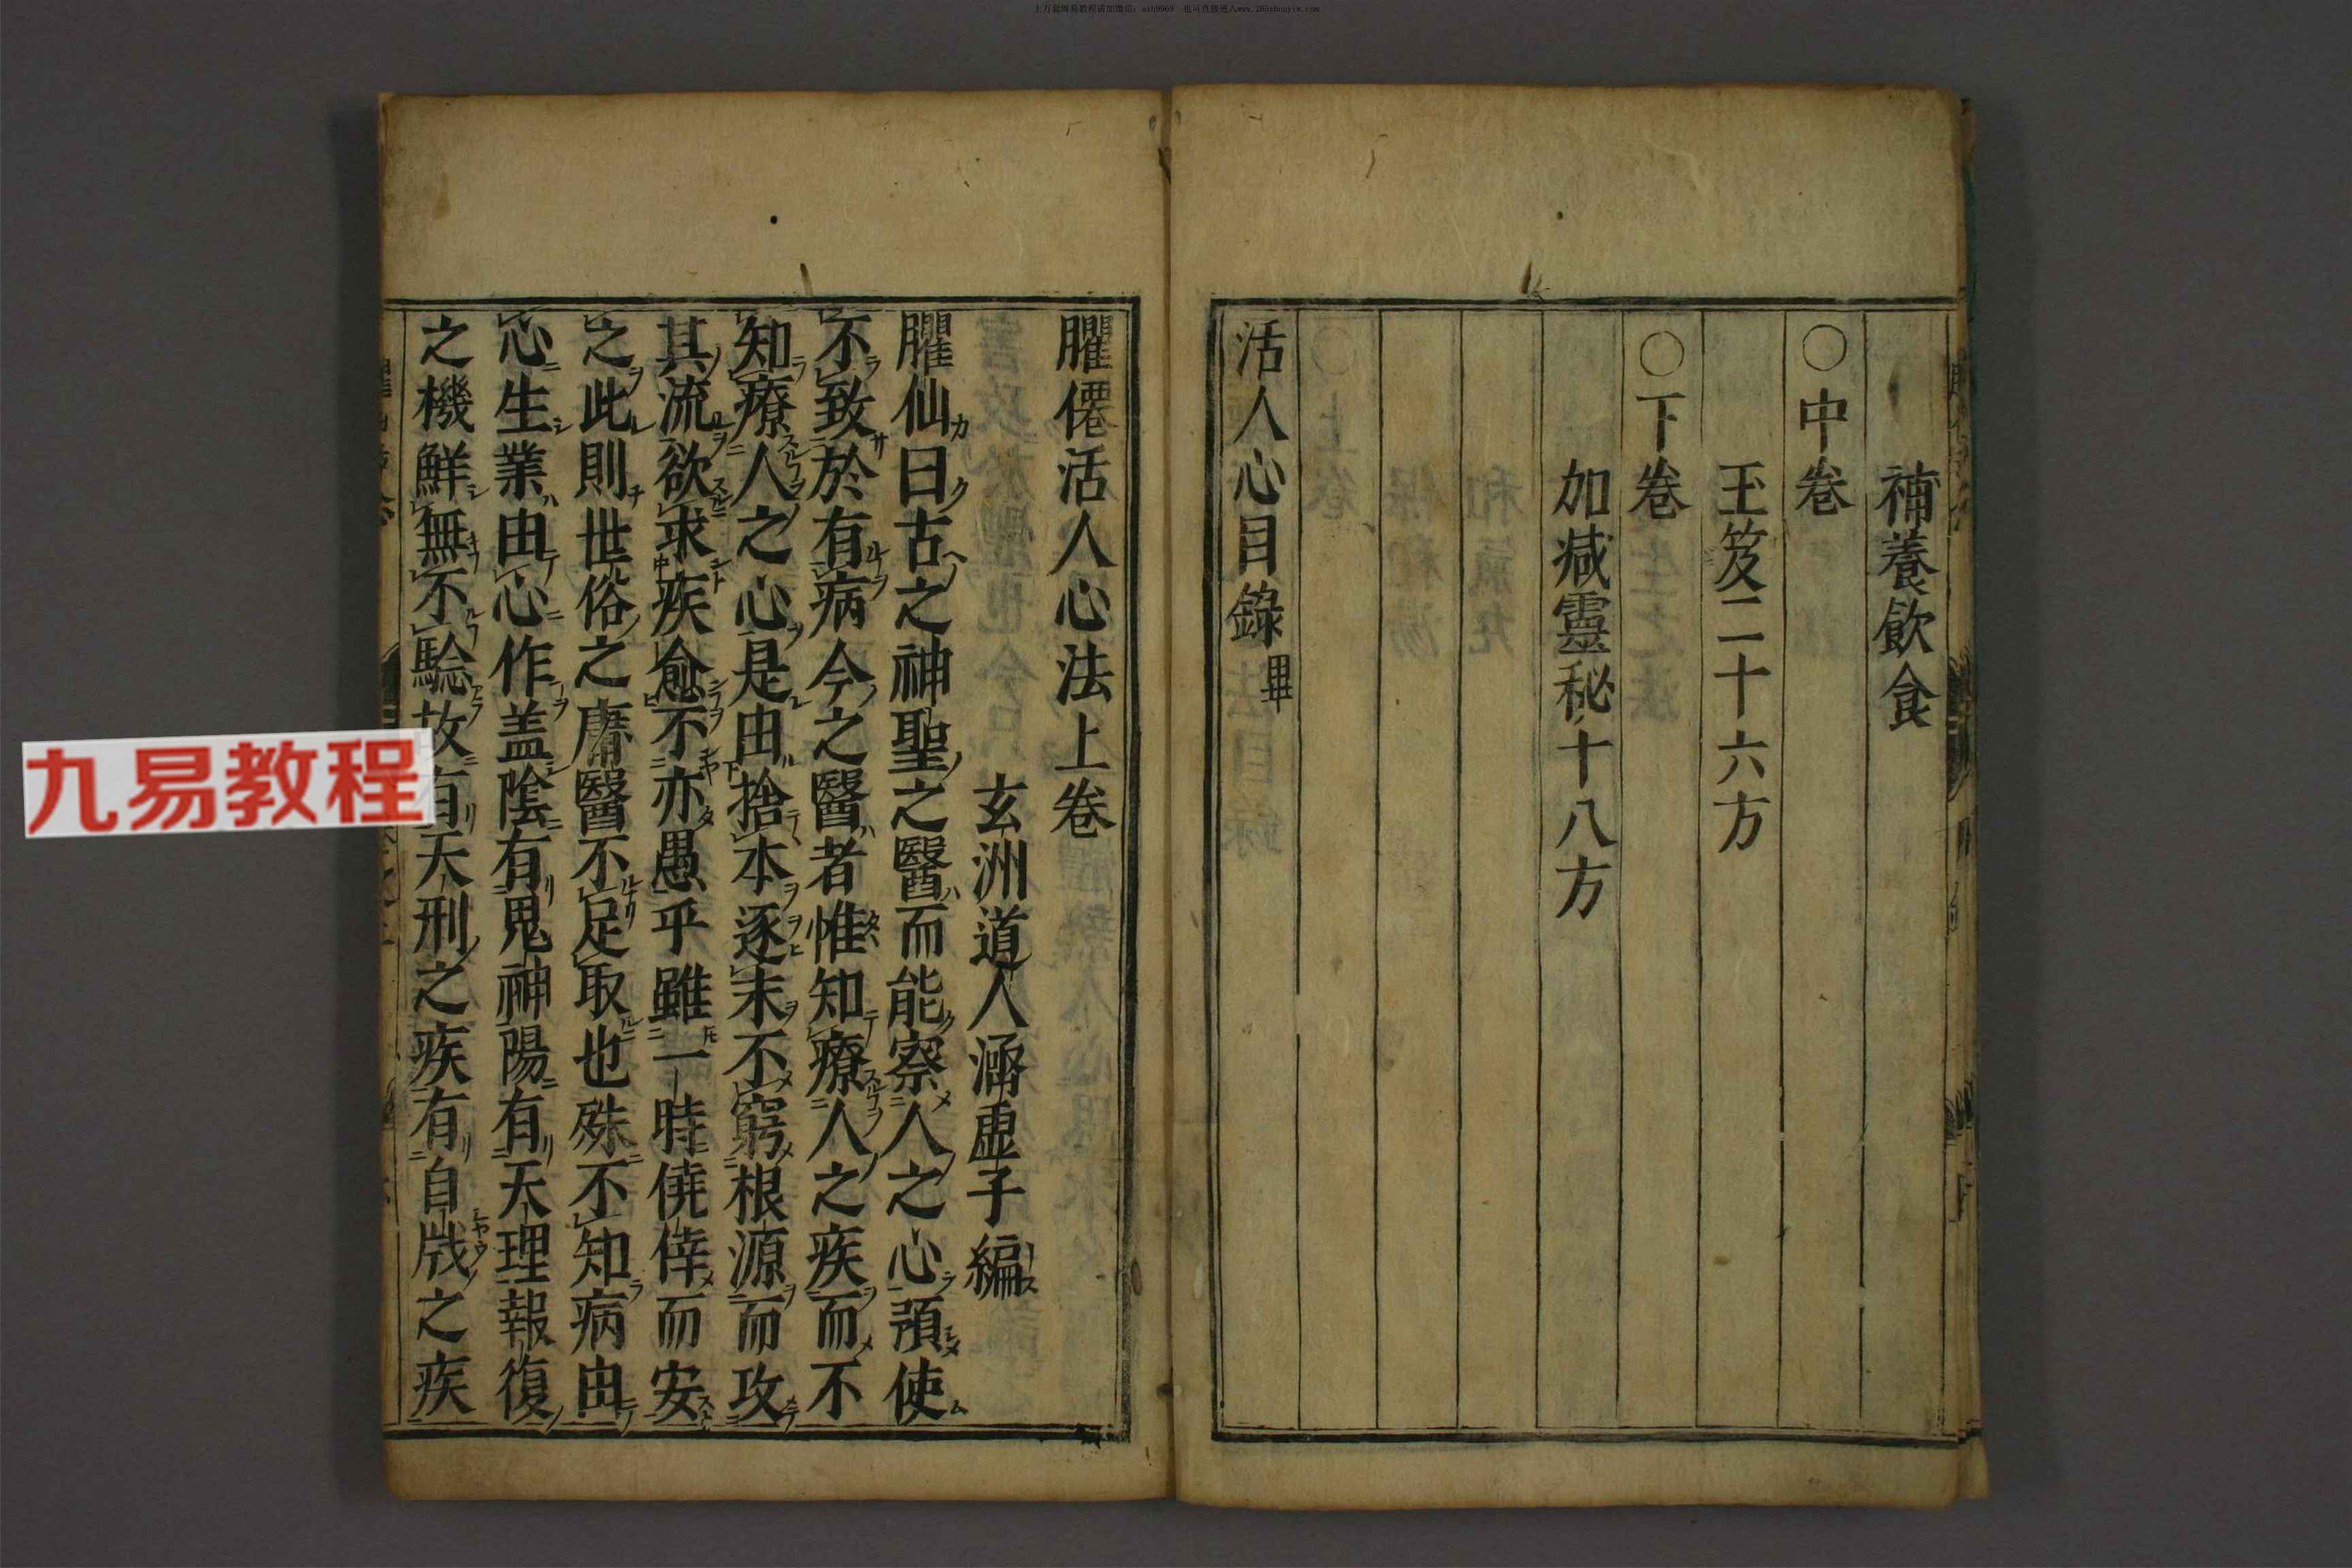 上万套周易教程请加微信：auh9969 也可直接进入www.265zhouyiw.com
補養飲食
○中卷
玉笈二十六方
○下卷
加減靈秘十八方
活人心目錄畢
臞僊活人心法上卷
玄洲道人涵虛子編
臞仙曰古之神聖之醫而能察人之心預使
不致於有病今之醫者惟知療人之疾而不
知療人之心是由捨本逐末不窮根源而攻
其流欲求疾愈不亦愚乎雖一時僥倖而安
之此則世俗之庸醫不足取也殊不知病由
心生業由心作盖陰有鬼神陽有天理報復
之機鮮無不驗故有天刑之疾有自戕之疾
九易教程